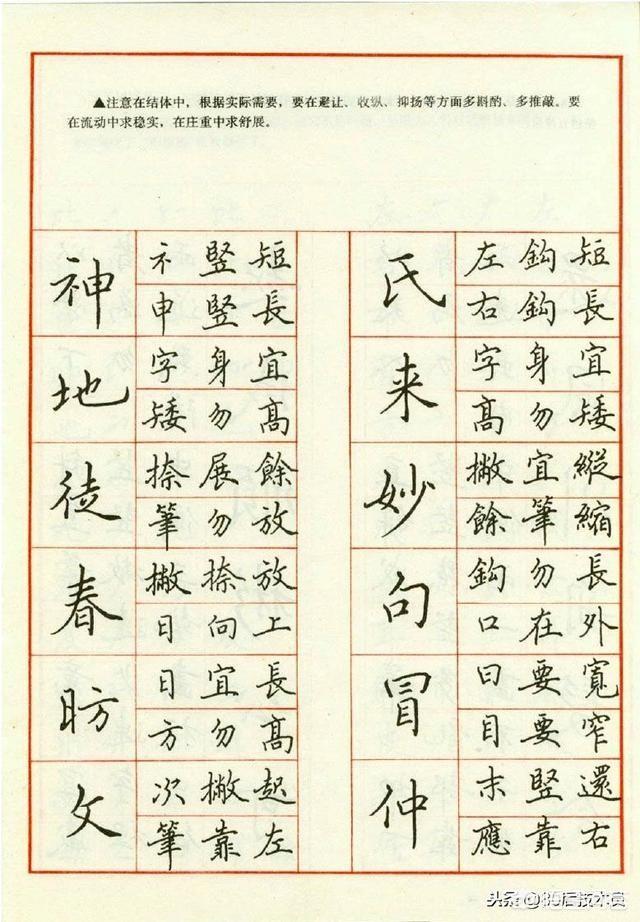 ▲注意在结体中，根据实际需要，要在避让、收纵、抑扬等方面多斟酌、多推敲。要
在流动中求稳实，在庄重中求舒展。
神
礻竪短
申竪長
地
字身宜
矮勿高
徒
捺展餘
筆勿放
春
撇捺放
日向上
昉
日宜長
方勿高
文
次撇起
筆靠左
氏
左鈎短
右鈎長
来
字身宜
高勿矮
妙
撇宜縱
餘筆縮
句
鈎勿長
口在外
冒
曰要寬
目要窄
仲
末竪還
應靠右
头条